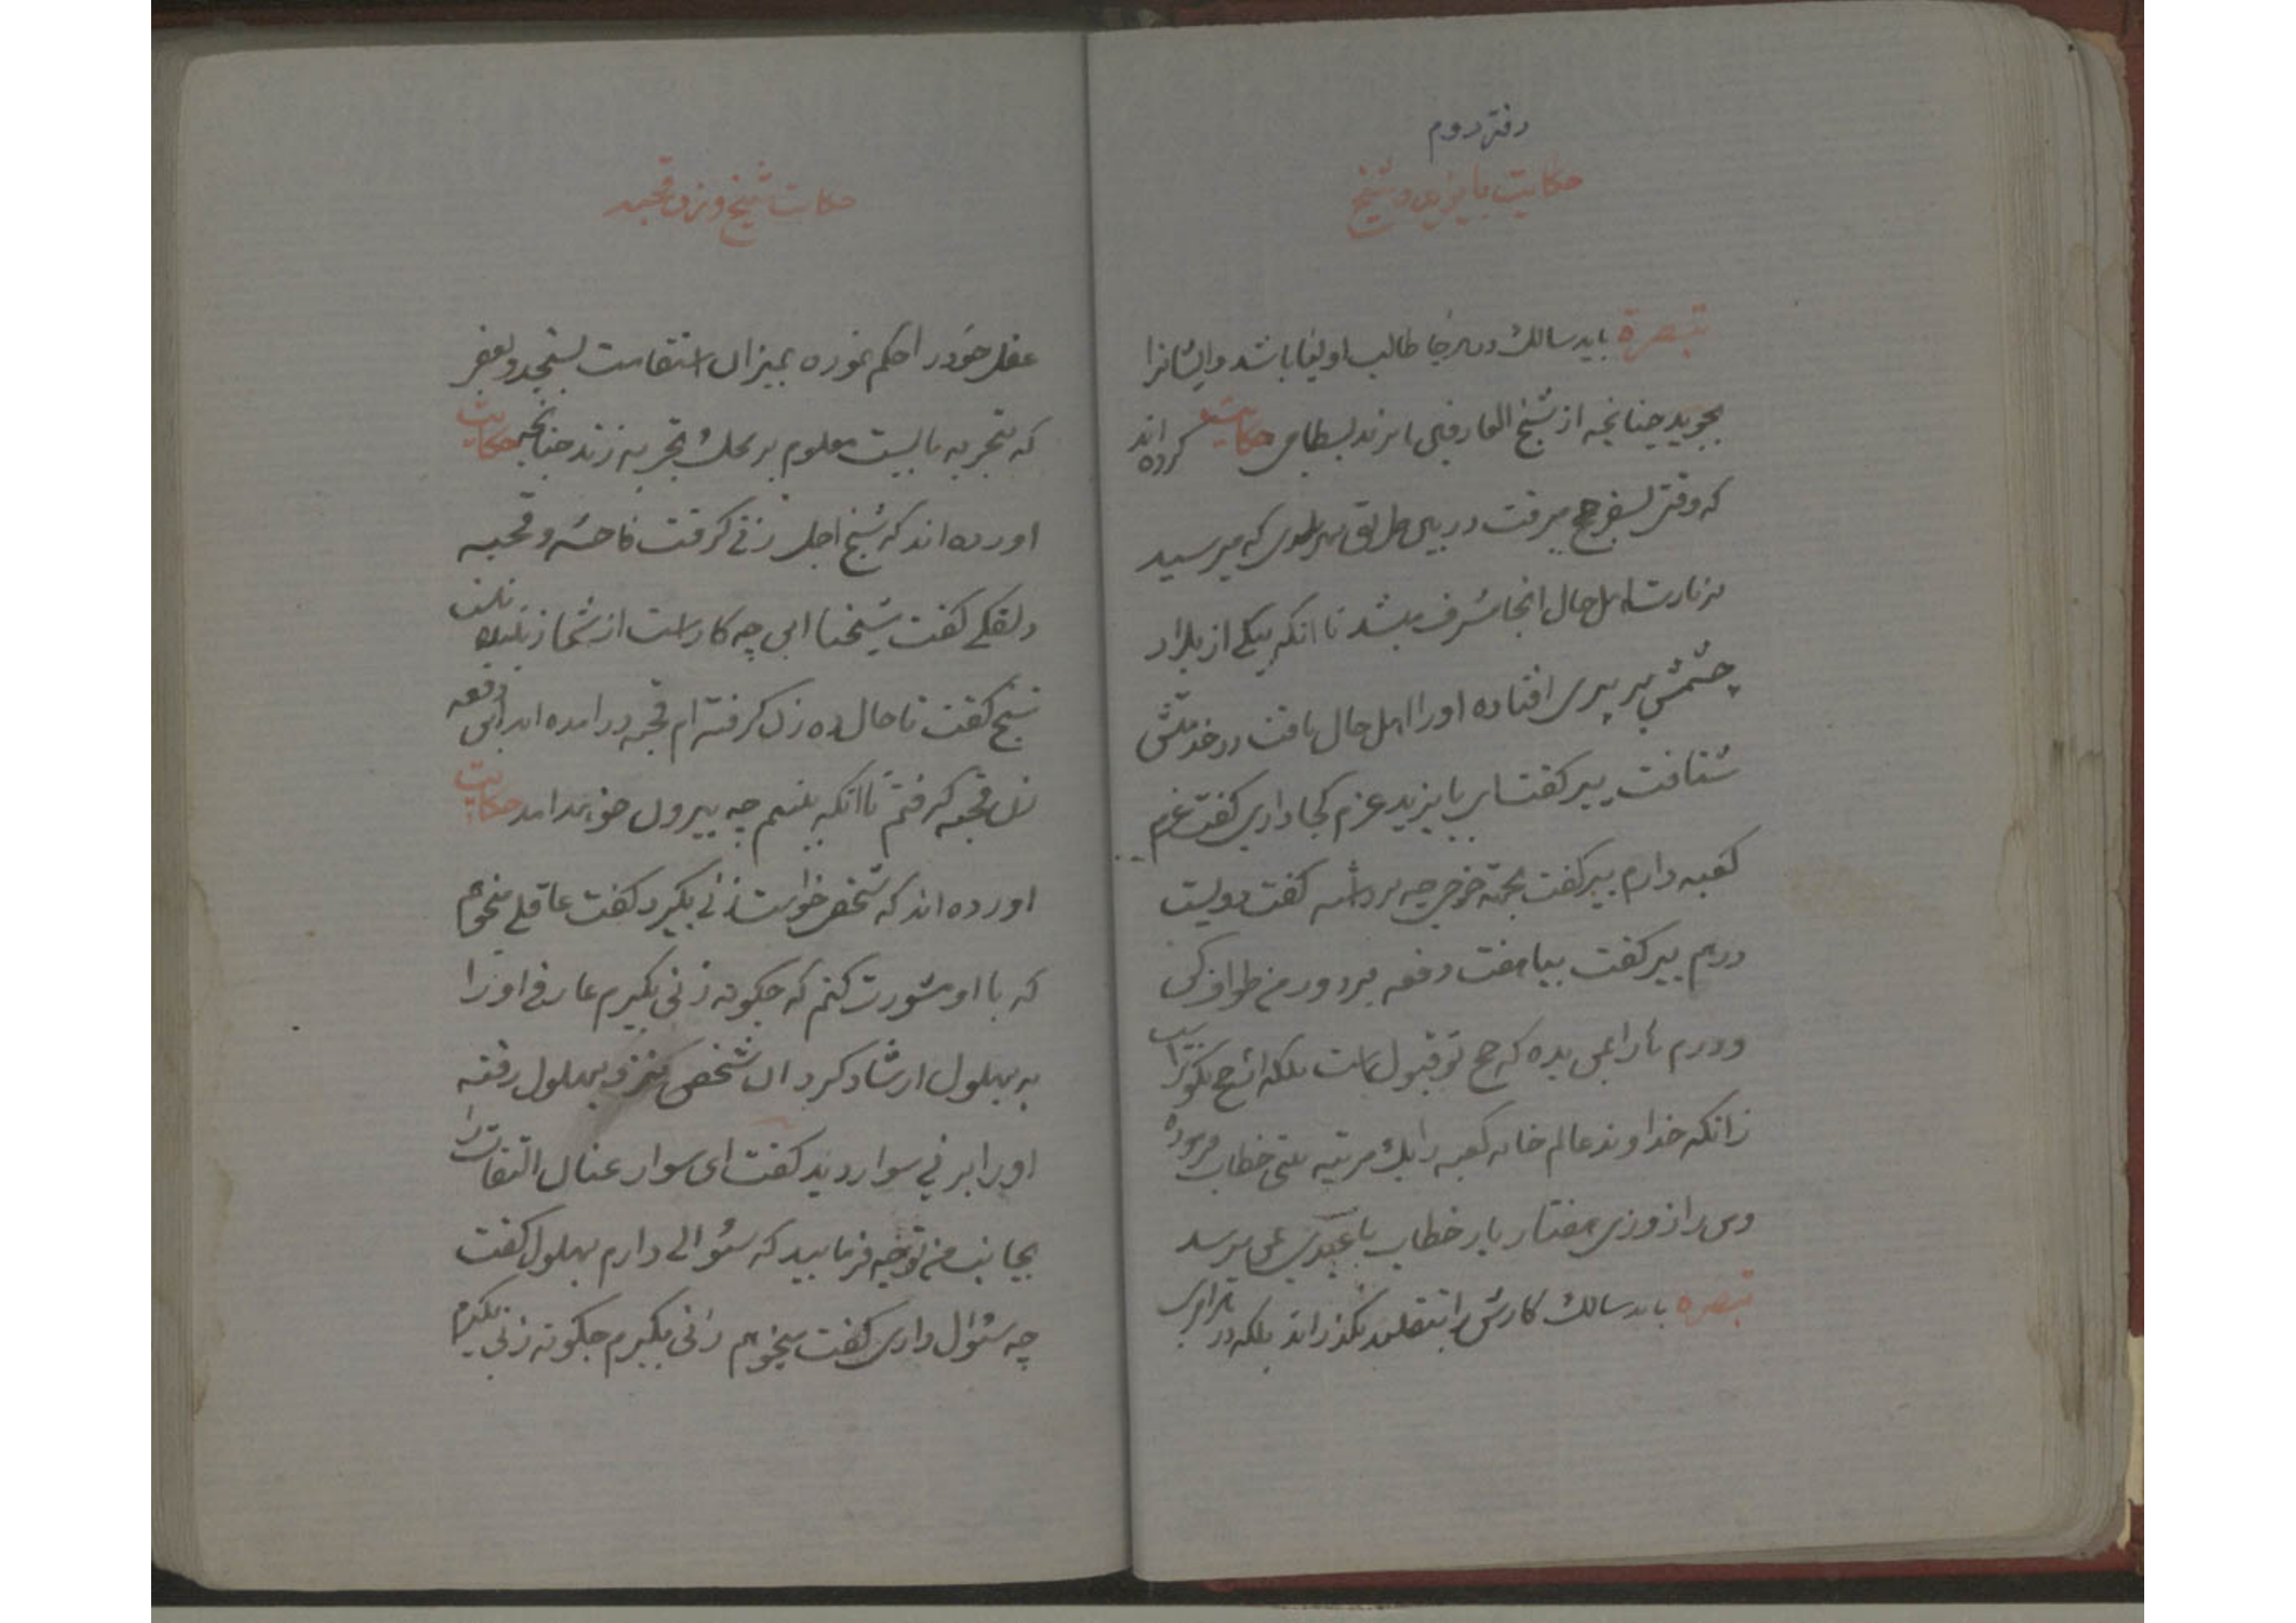 دفتر دوم
حکایت بایزید و شیخ
تبصرة باید سالك در هرجا طالب اولیا باشد و ایشانرا
بجوید چنانچه از شیخ العارفین بایزید بسطامی حکایت کرده اند
که وقتی بسفر حج میرفت در بین طریق بهر بلدی که میرسید
بزیارت اهل حال انجا مشرف میشد تا انکه بیکی از بلاد
چشمش بر پیری افتاده اورا اهل حال یافت در خدمتش
شتافت پیر گفت ای بایزید عزم کجا داری گفت عزم
کعبه دارم پیر گفت بجهة خرجی چه برداشته گفت دویست
درهم پیر گفت بیا هفت دفعه بر دور من طواف کن
ودرم هارا بمن بده که حج تو قبول است بلکه این حج نکوتر است
زانکه خداوند عالم خانه کعبه را یك مرتبه بیتی خطاب فرموده
ومن را از وزی هفتاد بار خطاب یا عبدی بمن میرسد
تبصره باید سالك کارش را بتقلید نگذراند بلکه در هر امری
حکایت شیخ و زن قحبه
عقل خود را حکم نموده بمیزان استقامت بسنجد و بعضی
که بتجربه بایست معلوم بر محك تجربه زند چنانچه حکایت
اورده اند که شیخ اجل زنی گرفت فاحشه و قحبه
دلقکی گفت شیخنا این چه کار است از شما
شیخ گفت تا حال ده زن گرفته ام قحبه درامده اند این دفعه
زن قحبه گرفتم تا انکه ببینم چه بیرون خواهد امد حکایت
اورده اند که شخصی خواست زنی بگیرد گفت عاقلی میخواهم
که با او مشورت کنم که چگونه زنی بگیرم عارفی اورا
به بهلول ارشاد کرد ان شخص بنزد بهلول رفته
اورا بر نی سوار دید گفت ای سوار عنان التفات را
بجانب من توجه فرمایید که سئوالی دارم بهلول گفت
چه سئوال داری گفت میخواهم زنی بگیرم چگونه زنی بگیرم